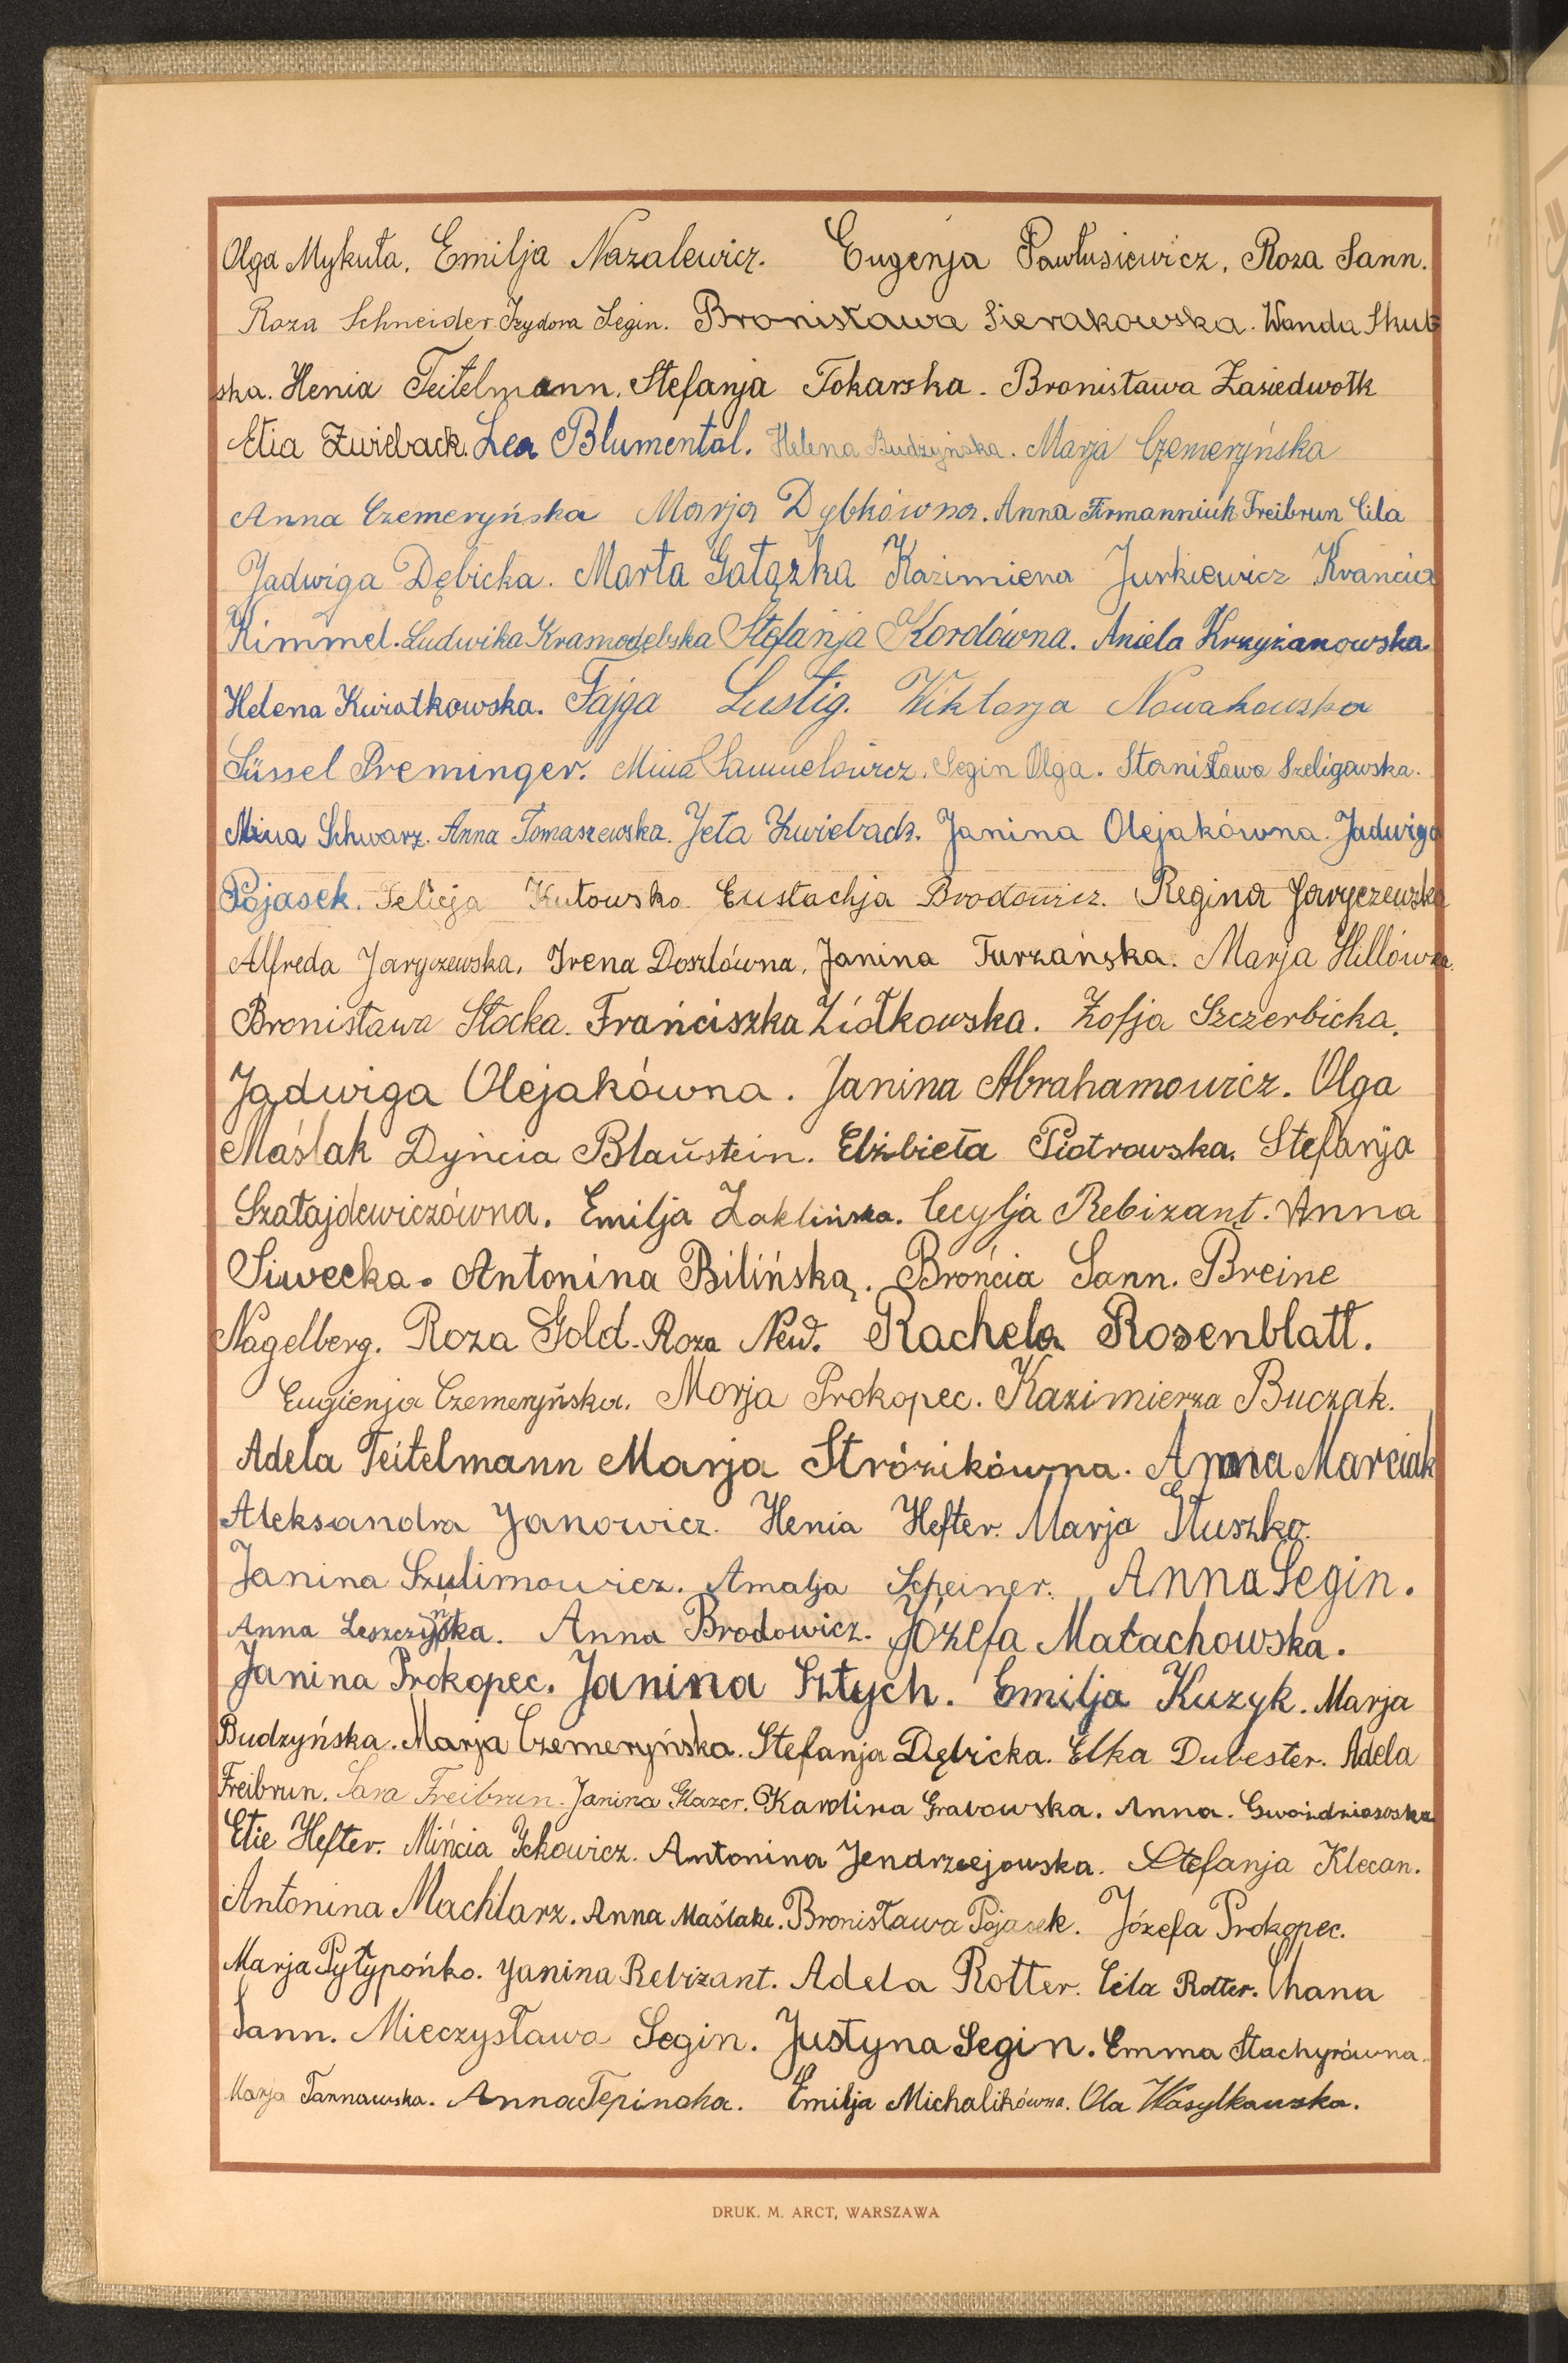 Olga Mykuła. Emilja Nazalewicz. Eugenja Pawłusiewicz, Roza Sann.
Roza Schneider. Izydora Segin. Bronisława Sierakowska. Wanda Skub
ska. Henia Teitelmann. Stefanja Tokarska. Bronisława Zasiedwołk
Etia Zwieback. Lea Blumental. Helena Budzyńska. Marja Czemeryńska
Anna Czemeryńska Marja Dybkówna. Anna Firmanniuk Freibrun Cila
Jadwiga Dębicka. Marta Gałązka Kazimiera Jurkiewicz Krancia
Kimmel. Ludwika Krasnodębska Stefanja Kordówna. Aniela Krzyżanowska.
Helena Kwiatkowska. Fajga Lustig. Wiktorja Nowakowska
Süssel Preminger. Mina Samuelowicz. Segin Olga. Stanisława Szeligowska.
Mina Schwarz. Anna Tomaszewska. Jeta Zwieback. Janina Olejakówna. Jadwiga
Pojasek. Felicja Kutowska. Eustachja Brodowicz. Regina Jaryczewska
Alfreda Jaryczewska. Irena Doszlówna. Janina Turzańska. Marja Hillówna.
Bronisława Stocka. Franciszka Ziółkowska. Zofja Szczerbicka.
Jadwiga Olejakówna. Janina Abrahamowicz. Olga
Maślak Dyńcia Blaustein. Elżbieta Piotrowska. Stefanja
Szałajdewiczówna. Emilja Zaklińska. Cecylja Rebizant. Anna
Siwecka. Antonina Bilińska. Brońcia Sann. Breine
Nagelberg. Roza Gold. Roza Neud. Rachela Rosenblatt.
Eugienja Czemeryńska. Marja Prokopec. Kazimierza Buczak.
Adela Teitelmann Marja Strózikówna. Anna Marciak
Aleksandra Janowicz. Henia Hefter. Marja Głuszko.
Janina Szulimowicz. Amalja Scheiner. Anna Segin.
Anna Leszczyńska. Anna Brodowicz. Józefa Małachowska.
Janina Prokopec. Janina Sztych. Emilja Kuzyk. Marja
Budzyńska. Marja Czemeryńska. Stefanja Dębicka. Elka Duvester. Adela
Freibrun. Sara Freibrun. Janina Glazer. Karolina Grabowska. Anna. Gwoździasoska
Etie Hefter. Mińcia Ickowicz. Antonina Jendrzejowska. Stefanja Klecan.
Antonina Machlarz. Anna Maślak. Bronisława Pojasek. Józefa Prokopec.
Marja Pyłypońko. Janina Rebizant. Adela Rotter. Cila Rotter. Chana
Sann. Mieczysława Segin. Justyna Segin. Emma Stachyrówna.
Marja Tarnawska. Anna Tepinska. Emilja Michalikówna. Ola Wasylkowska.
DRUK. M. ARCT, WARSZAWA